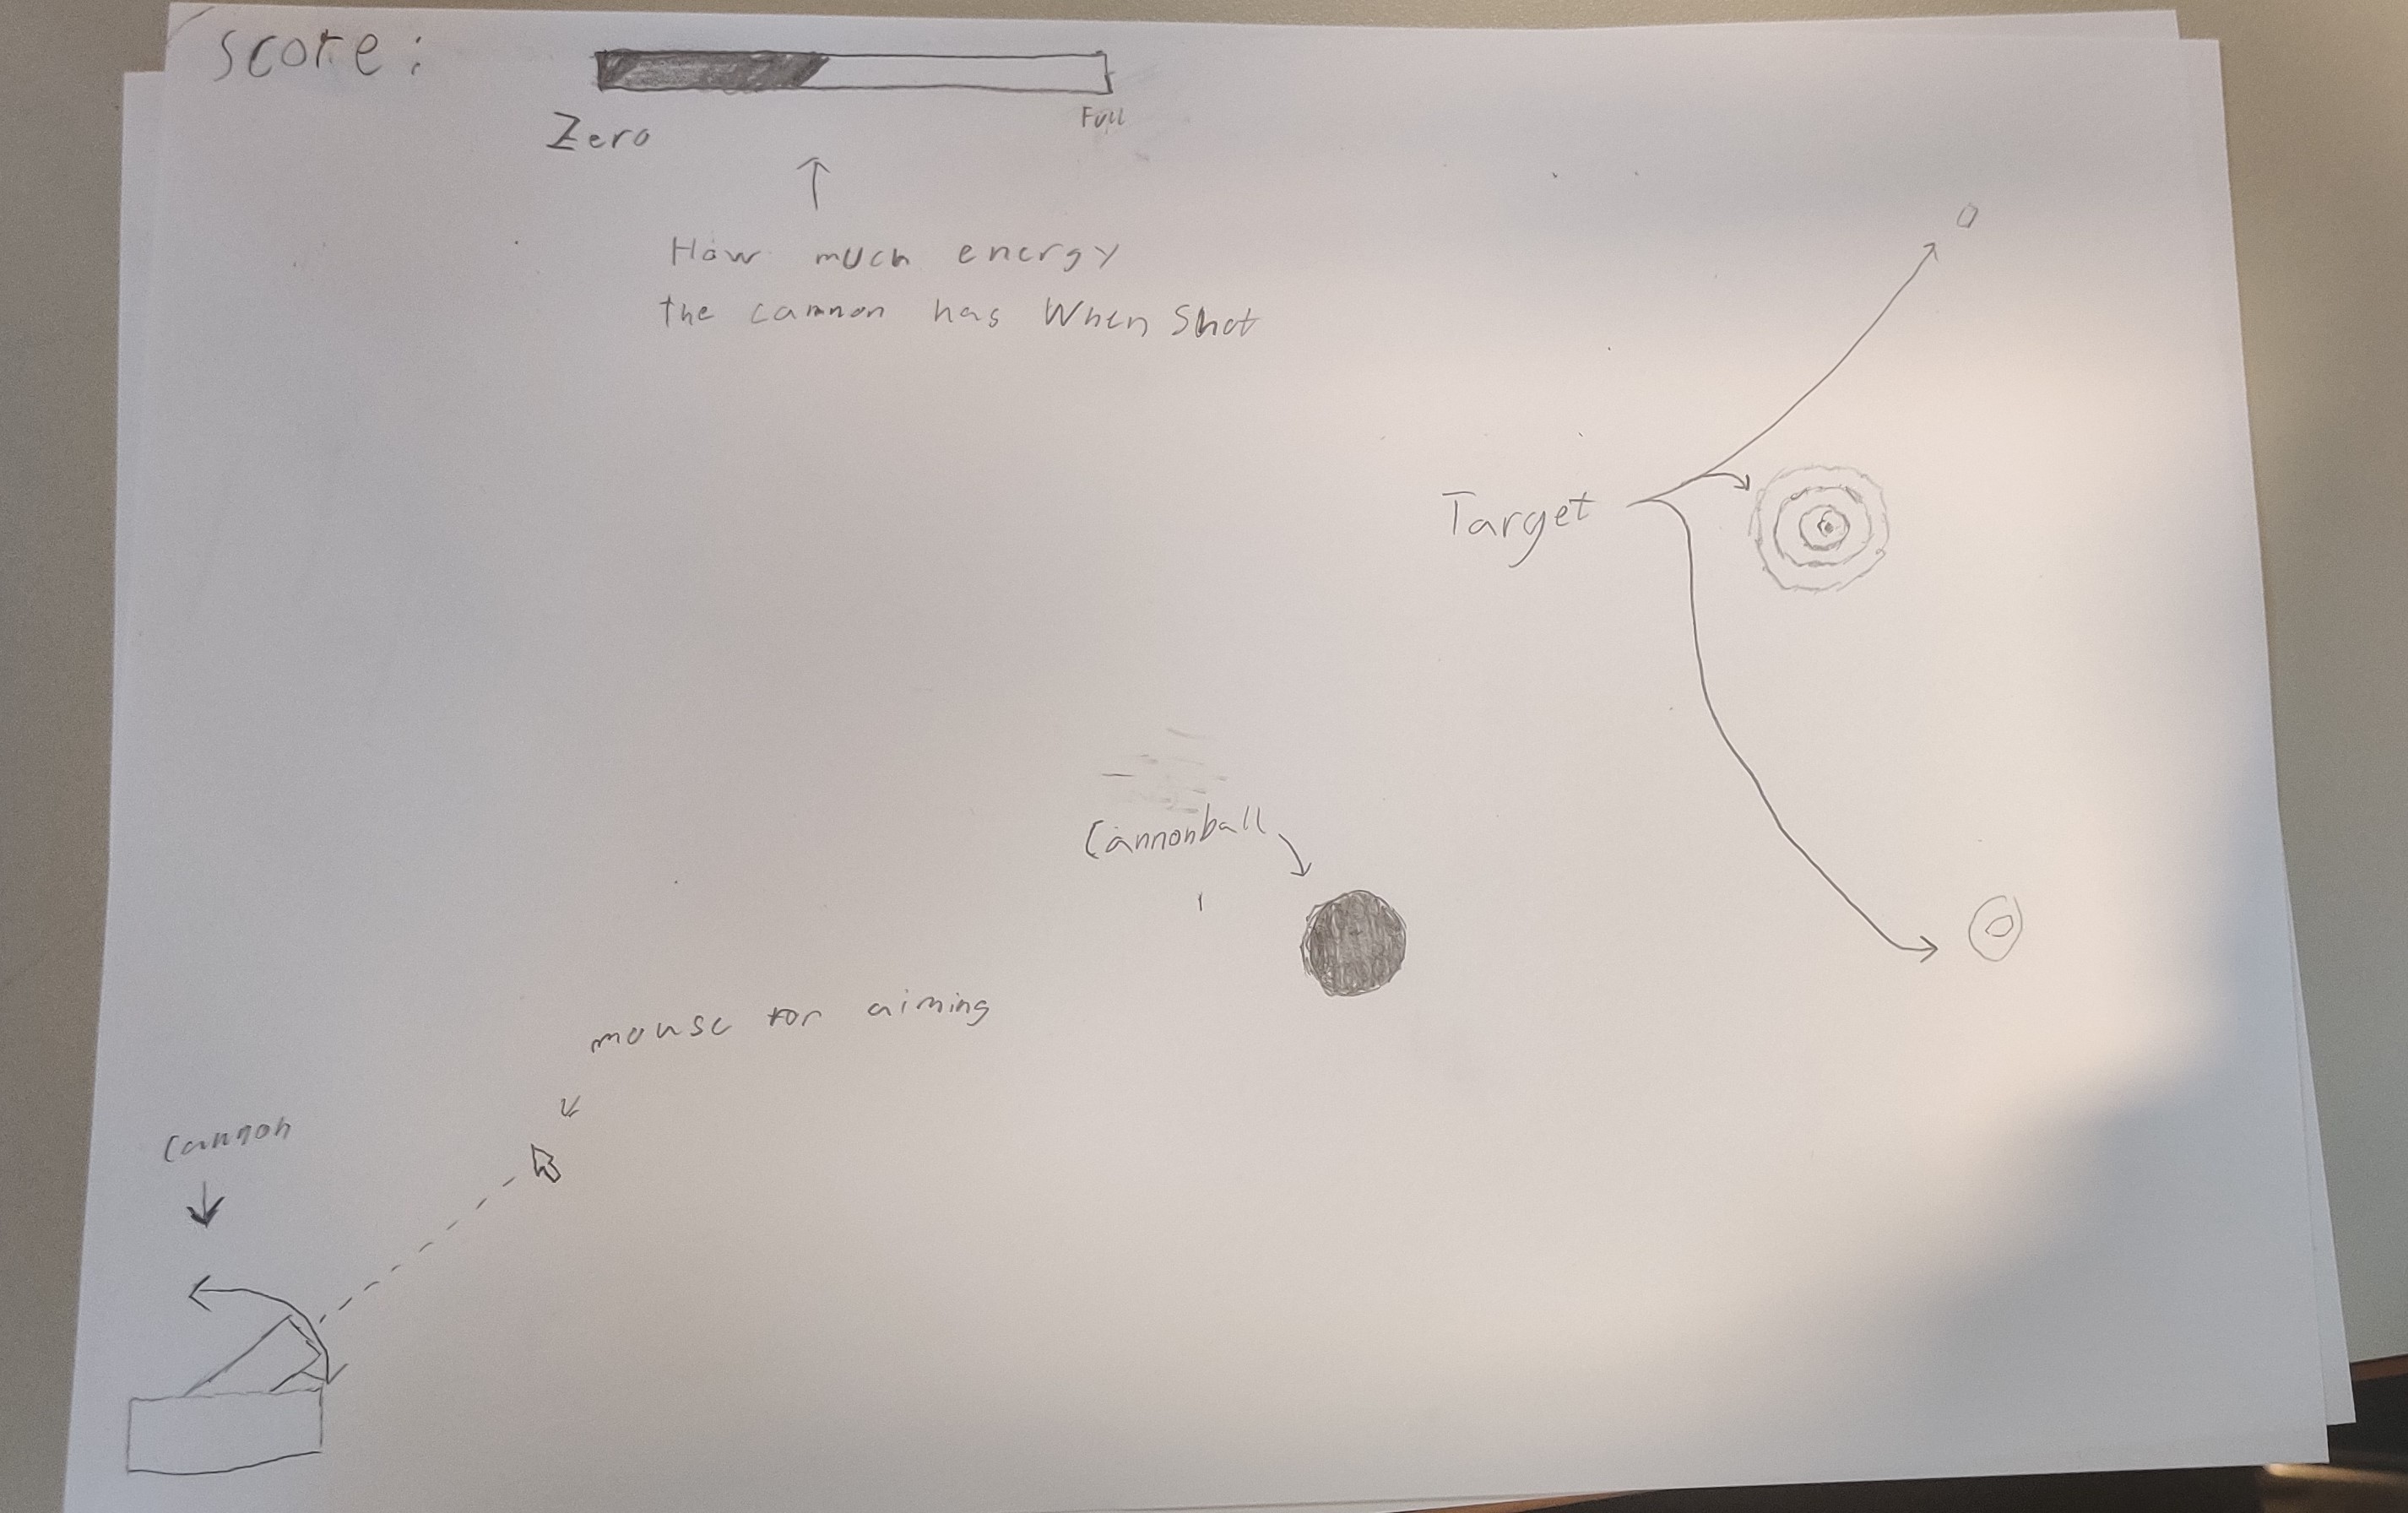 Score:
Zero
Full
How much energy
the cannon has When Shot
Target
Cannonball
mouse for aiming
Cannon